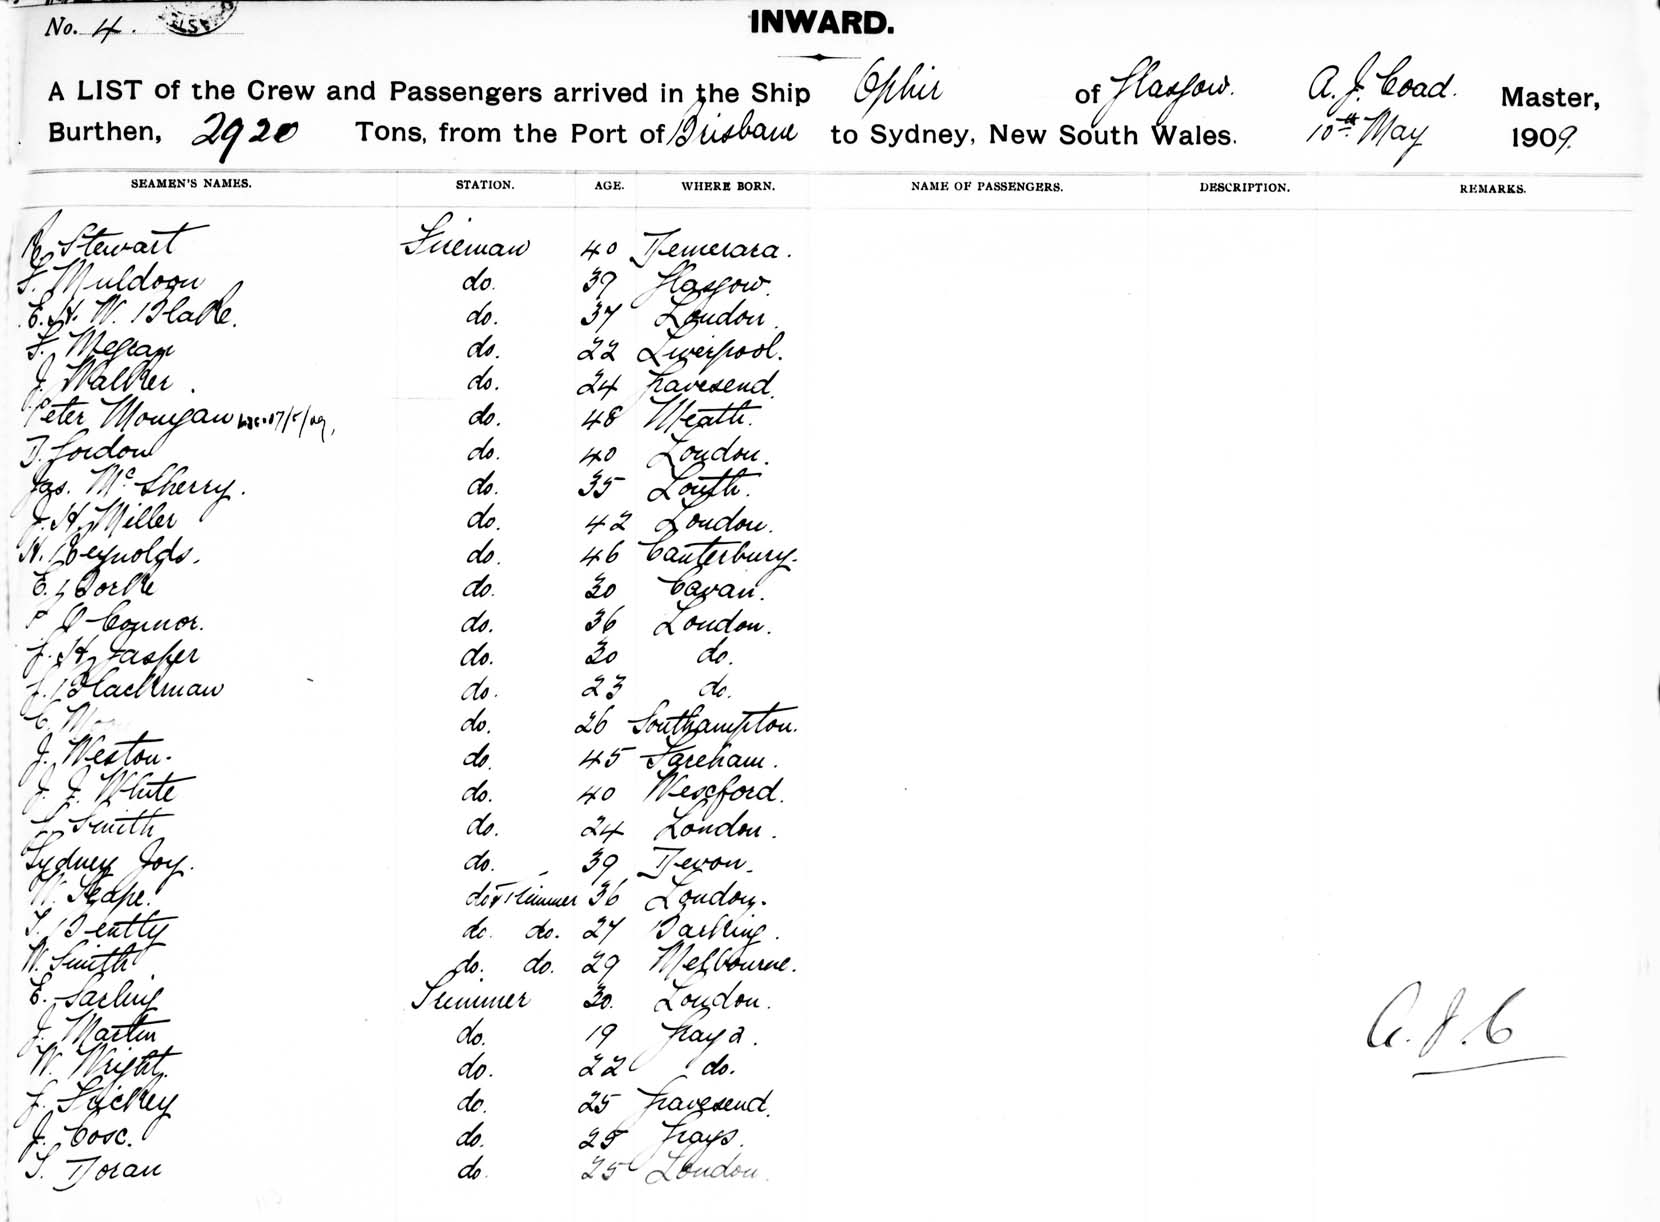 No. 4.
INWARD.
A LIST of the Crew and Passengers arrived in the Ship Ophir of Glasgow. A. J. Coad. Master,
Burthen, 2920 Tons, from the Port of Brisbane to Sydney, New South Wales. 10th May 1909.
SEAMEN'S NAMES. STATION. AGE. WHERE BORN. NAME OF PASSENGERS. DESCRIPTION. REMARKS.
R. Stewart Fireman 40 Demerara.
F. Muldoon do. 39 Glasgow.
E. H. W. Blake. do. 37 London.
F. Megran do. 22 Liverpool.
J. Walker. do. 24 Gravesend.
Peter Mongan do. 48 Meath.
D. Gordon do. 40 London.
Jas. McSherry. do. 35 Louth.
J. H. Miller do. 42 London.
H. Reynolds. do. 46 Canterbury.
E. Borke do. 30 Cavan.
P O'Connor. do. 36 London.
J. H. Jasper do. 30 do.
J. Blackman do. 23 do.
C. do. 26 Southampton.
J. Weston. do. 45 Fareham.
J. J. White do. 40 Wexford.
S Smith do. 24 London.
Sydney Joy. do. 39 Devon.
W. Scape. do & Trimmer 36 London.
T. Bently do. do. 27 Barking.
W. Smith do. do. 29 Melbourne.
E. Sarling Trimmer 30. London.
J. Martin do. 19 Grays.
W. Wright. do. 22 do.
J. Stickey do. 25 Gravesend.
J. Cosc. do. 25 Grays.
T. Doran do. 25 London.
A. J. C